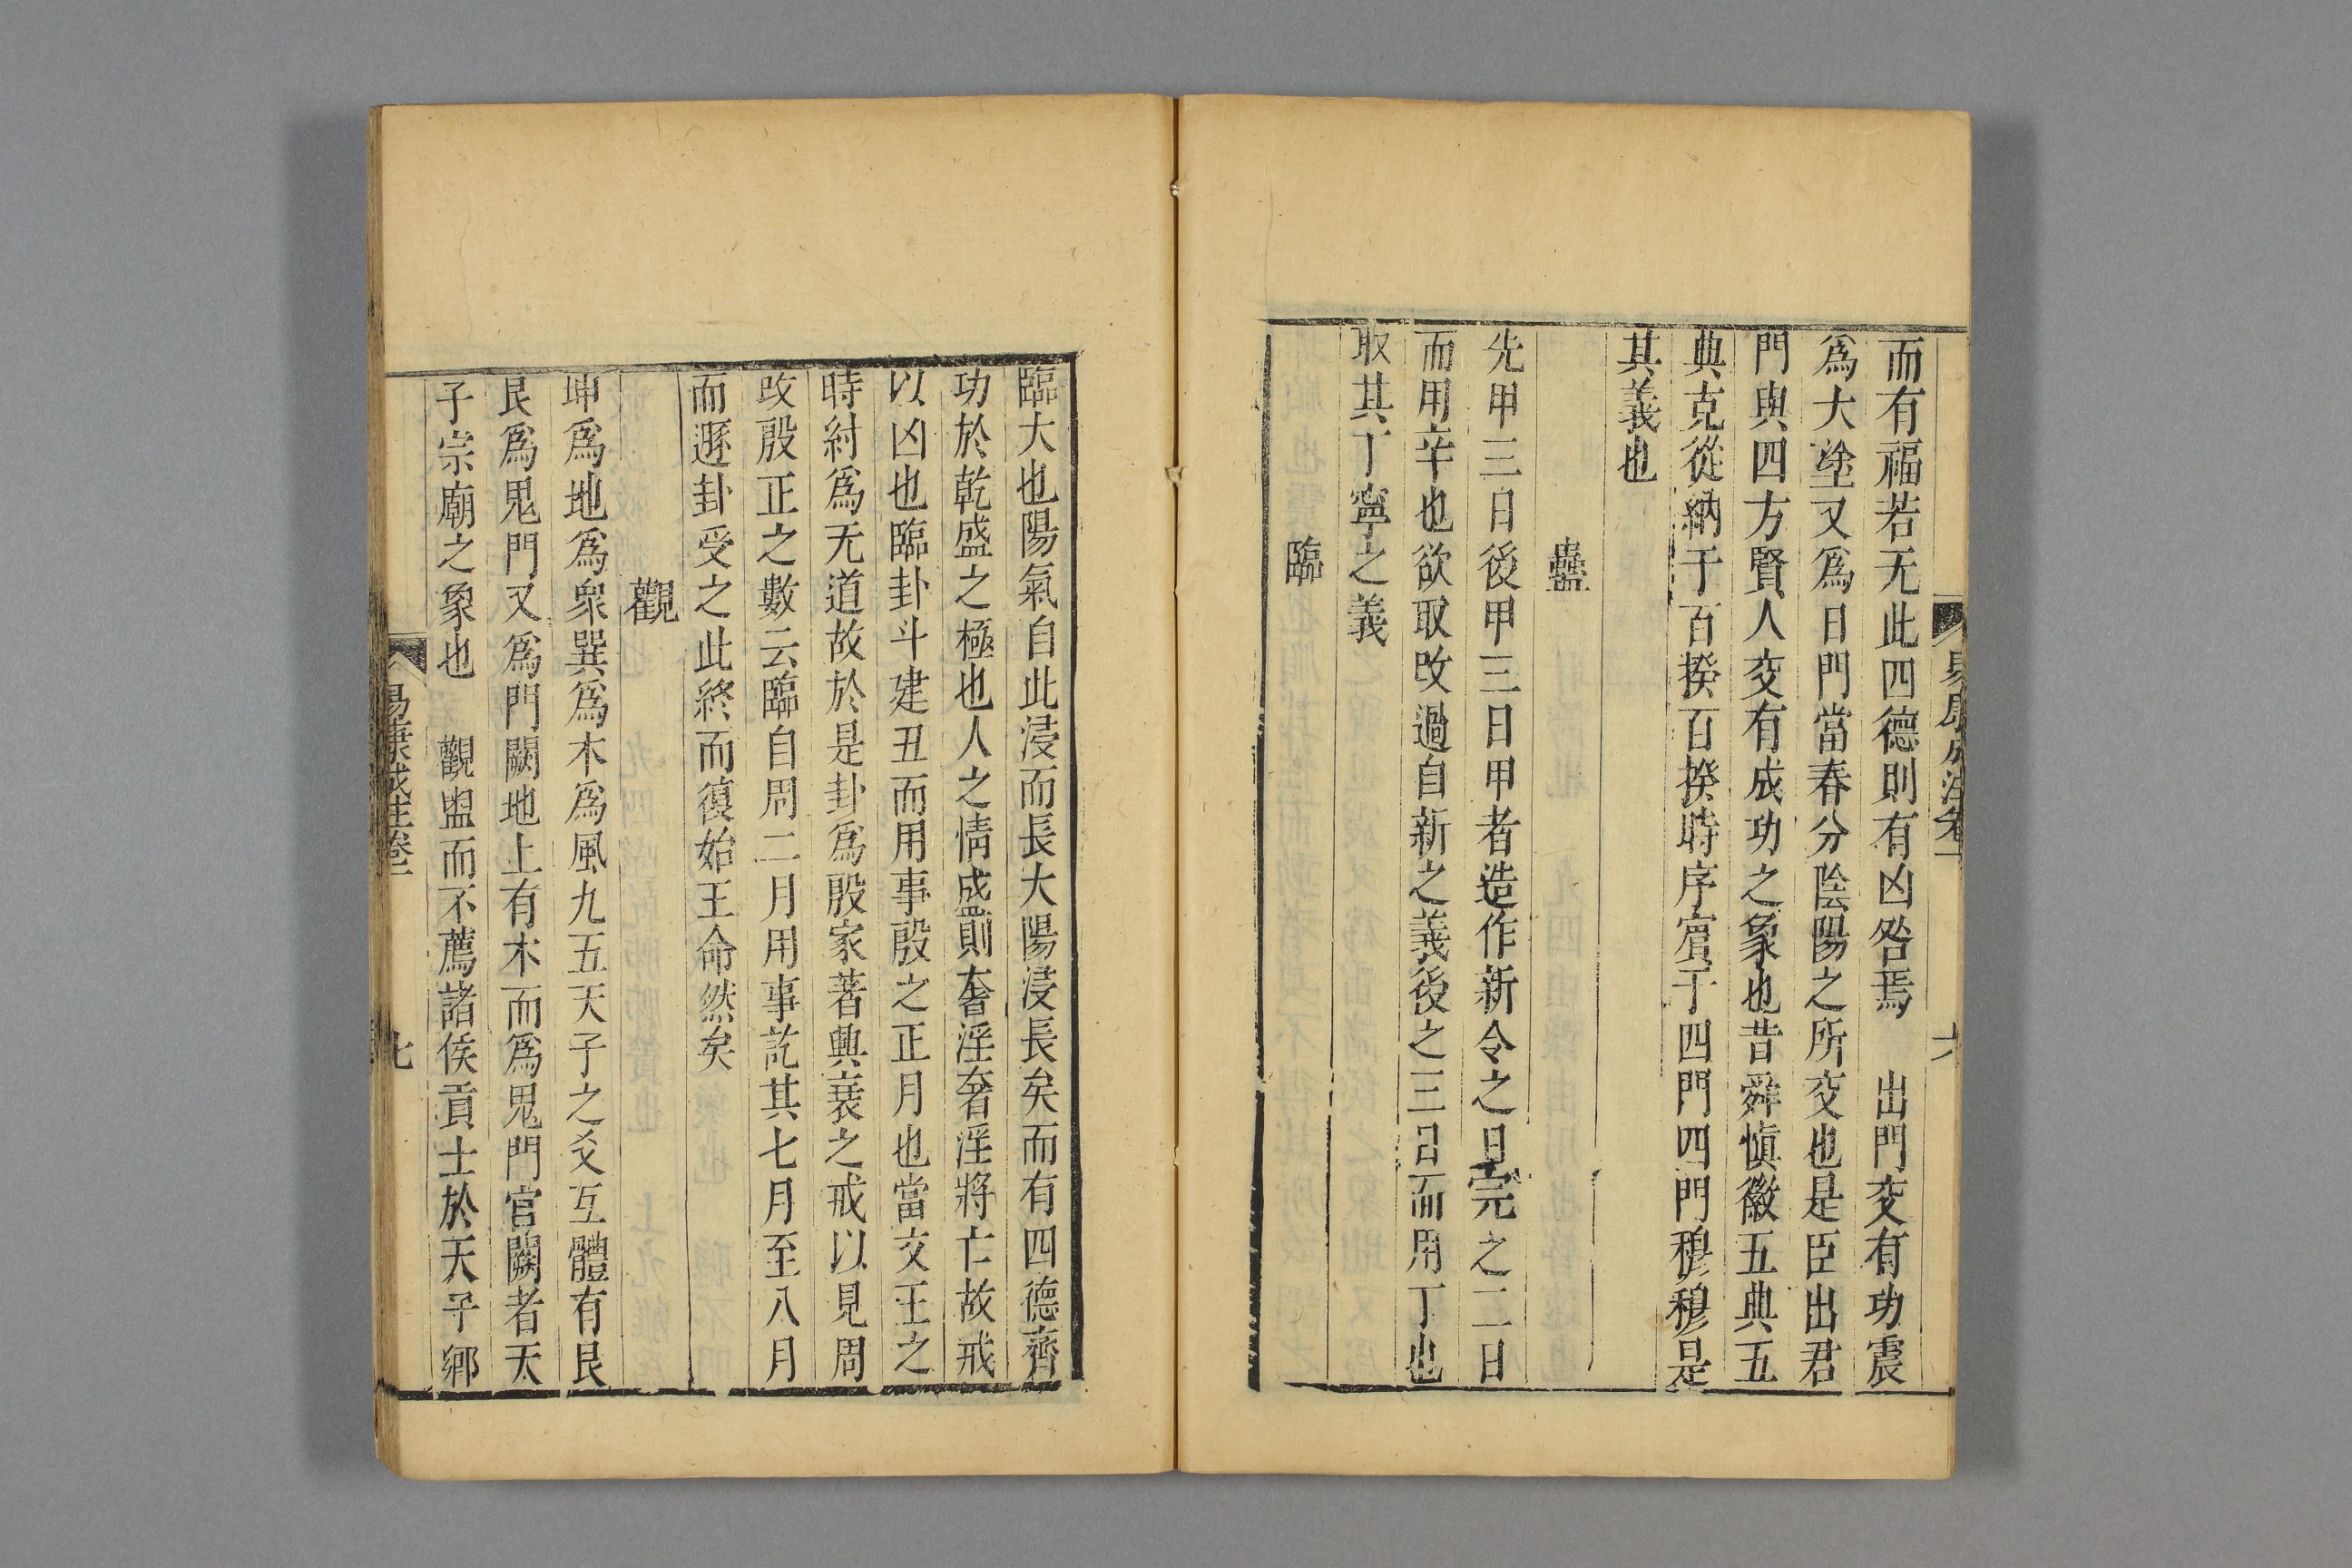 易康成注卷一
六
而有福若无此四德則有凶咎焉　出門交有功震
爲大塗又爲日門當春分陰陽之所交也是臣出君
門與四方賢人交有成功之象也昔舜慎徽五典五
典克從納于百揆百揆時序賓于四門四門穆穆是
其義也
蠱
先甲三日後甲三日甲者造作新令之日甲完之二日
而用辛也欲取改過自新之義後之三日而用丁也
取其丁寧之義
臨
臨大也陽氣自此浸而長大陽浸長矣而有四德齊
功於乾盛之極也人之情盛則奢淫奢淫將亡故戒
以凶也臨卦斗建丑而用事殷之正月也當文王之
時紂爲无道故於是卦爲殷家著興衰之戒以見周
改殷正之數云臨自周二月用事訖其七月至八月
而遯卦受之此終而復始王命然矣
觀
坤爲地爲衆巽爲木爲風九五天子之爻互體有艮
艮爲鬼門又爲門闕地上有木而爲鬼門宫闕者天
子宗廟之象也　觀盥而不薦諸侯貢士於天子鄉
易康成注卷一
七